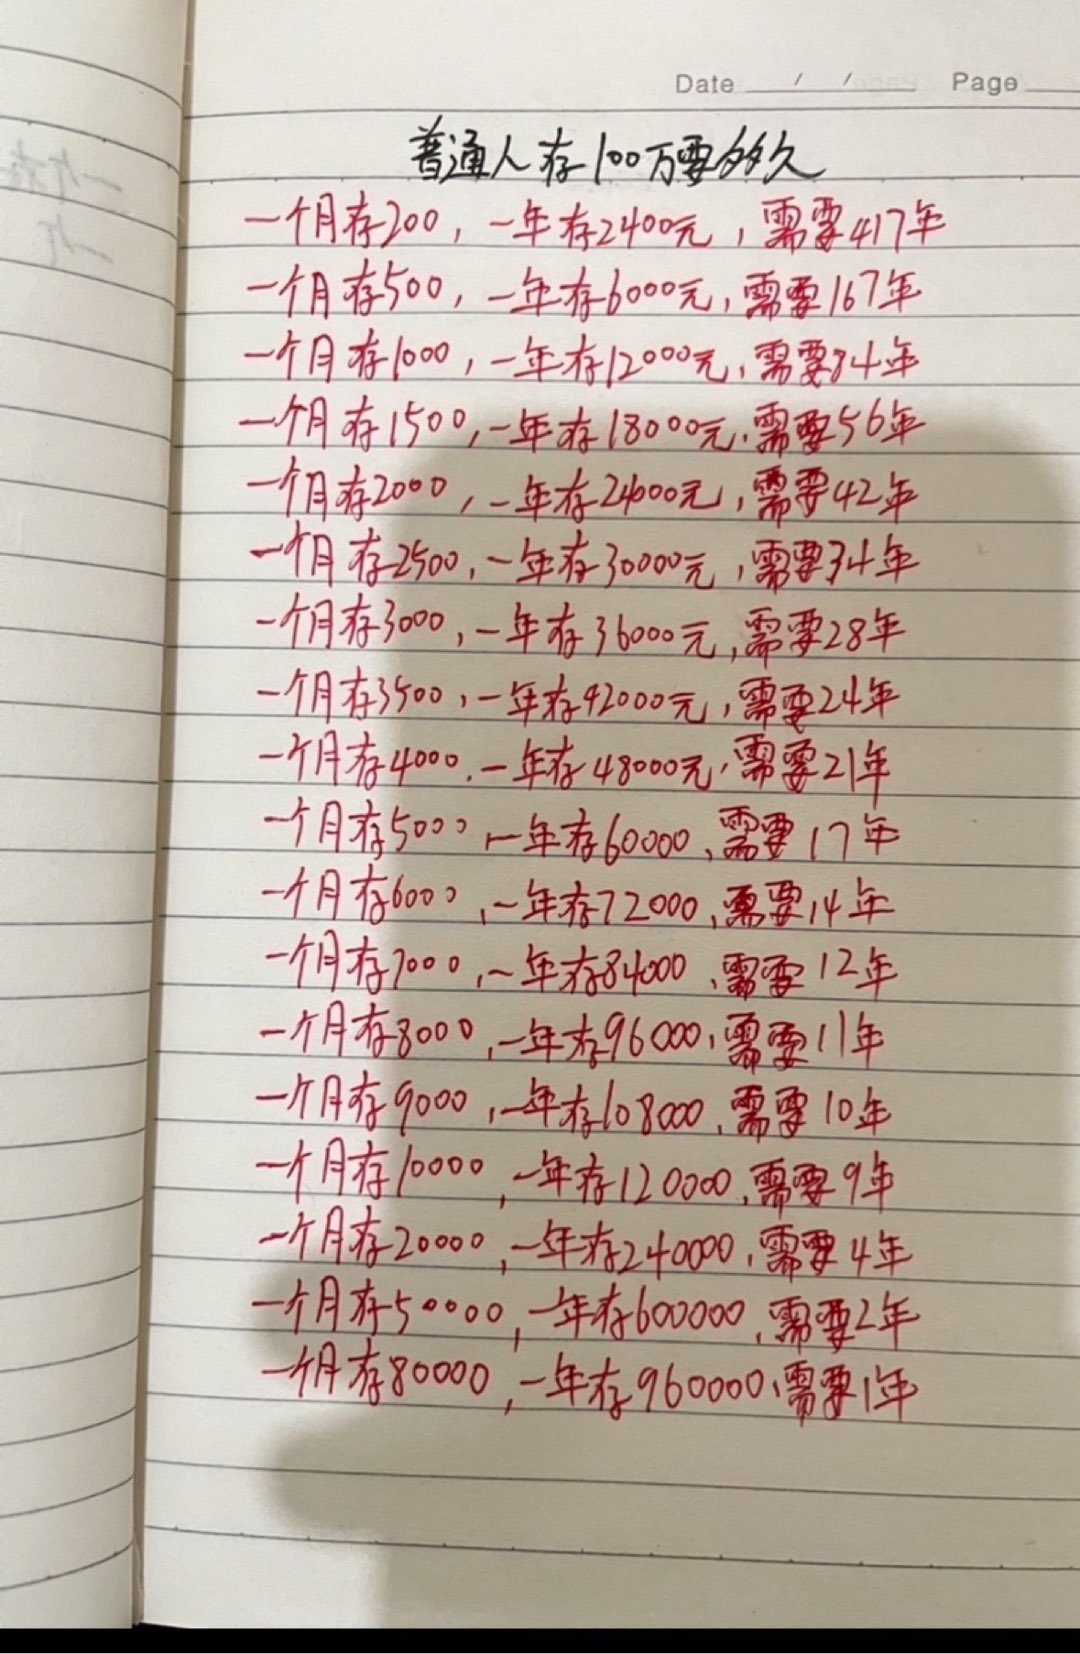 Date / / Page
普通人存100万要多久
一个月存200，一年存2400元，需要417年
一个月存500，一年存6000元，需要167年
一个月存1000，一年存12000元，需要84年
一个月存1500，一年存18000元，需要56年
一个月存2000，一年存24000元，需要42年
一个月存2500，一年存30000元，需要34年
一个月存3000，一年存36000元，需要28年
一个月存3500，一年存42000元，需要24年
一个月存4000，一年存48000元，需要21年
一个月存5000，一年存60000，需要17年
一个月存6000，一年存72000，需要14年
一个月存7000，一年存84000，需要12年
一个月存8000，一年存96000，需要11年
一个月存9000，一年存108000，需要10年
一个月存10000，一年存120000，需要9年
一个月存20000，一年存240000，需要4年
一个月存50000，一年存600000，需要2年
一个月存80000，一年存960000，需要1年